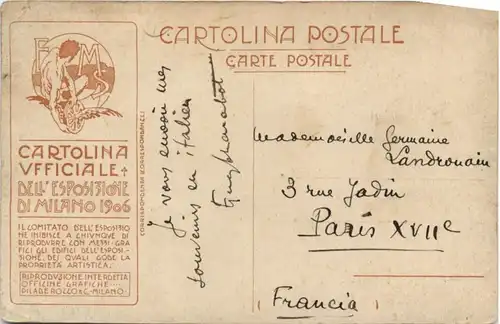 CARTOLINA POSTALE
CARTE POSTALE
E M S
CARTOLINA
VFFICIALE
DELL'ESPOSIZIONE
DI MILANO 1906
IL COMITATO DELL'ESPOSITIO
NE INIBISCE A CHIVNQVE DI
RIPRODVRRE CON MEZZI GRA-
FICI GLI EDIFICI DELL'ESPOSI-
ZIONE, DEI QVALI GODE LA
PROPRIETÀ ARTISTICA.
RIPRODVZIONE INTERDETTA
OFFICINE GRAFICHE
PILADE ROCCO & C. MILANO
CORRISPONDENZA (CORRESPONDANCE)
Je vous envoie mes
souvenirs en italien
Mademoiselle Germaine
Landrouain
3 rue Jadin
Paris XVIIe
Francia